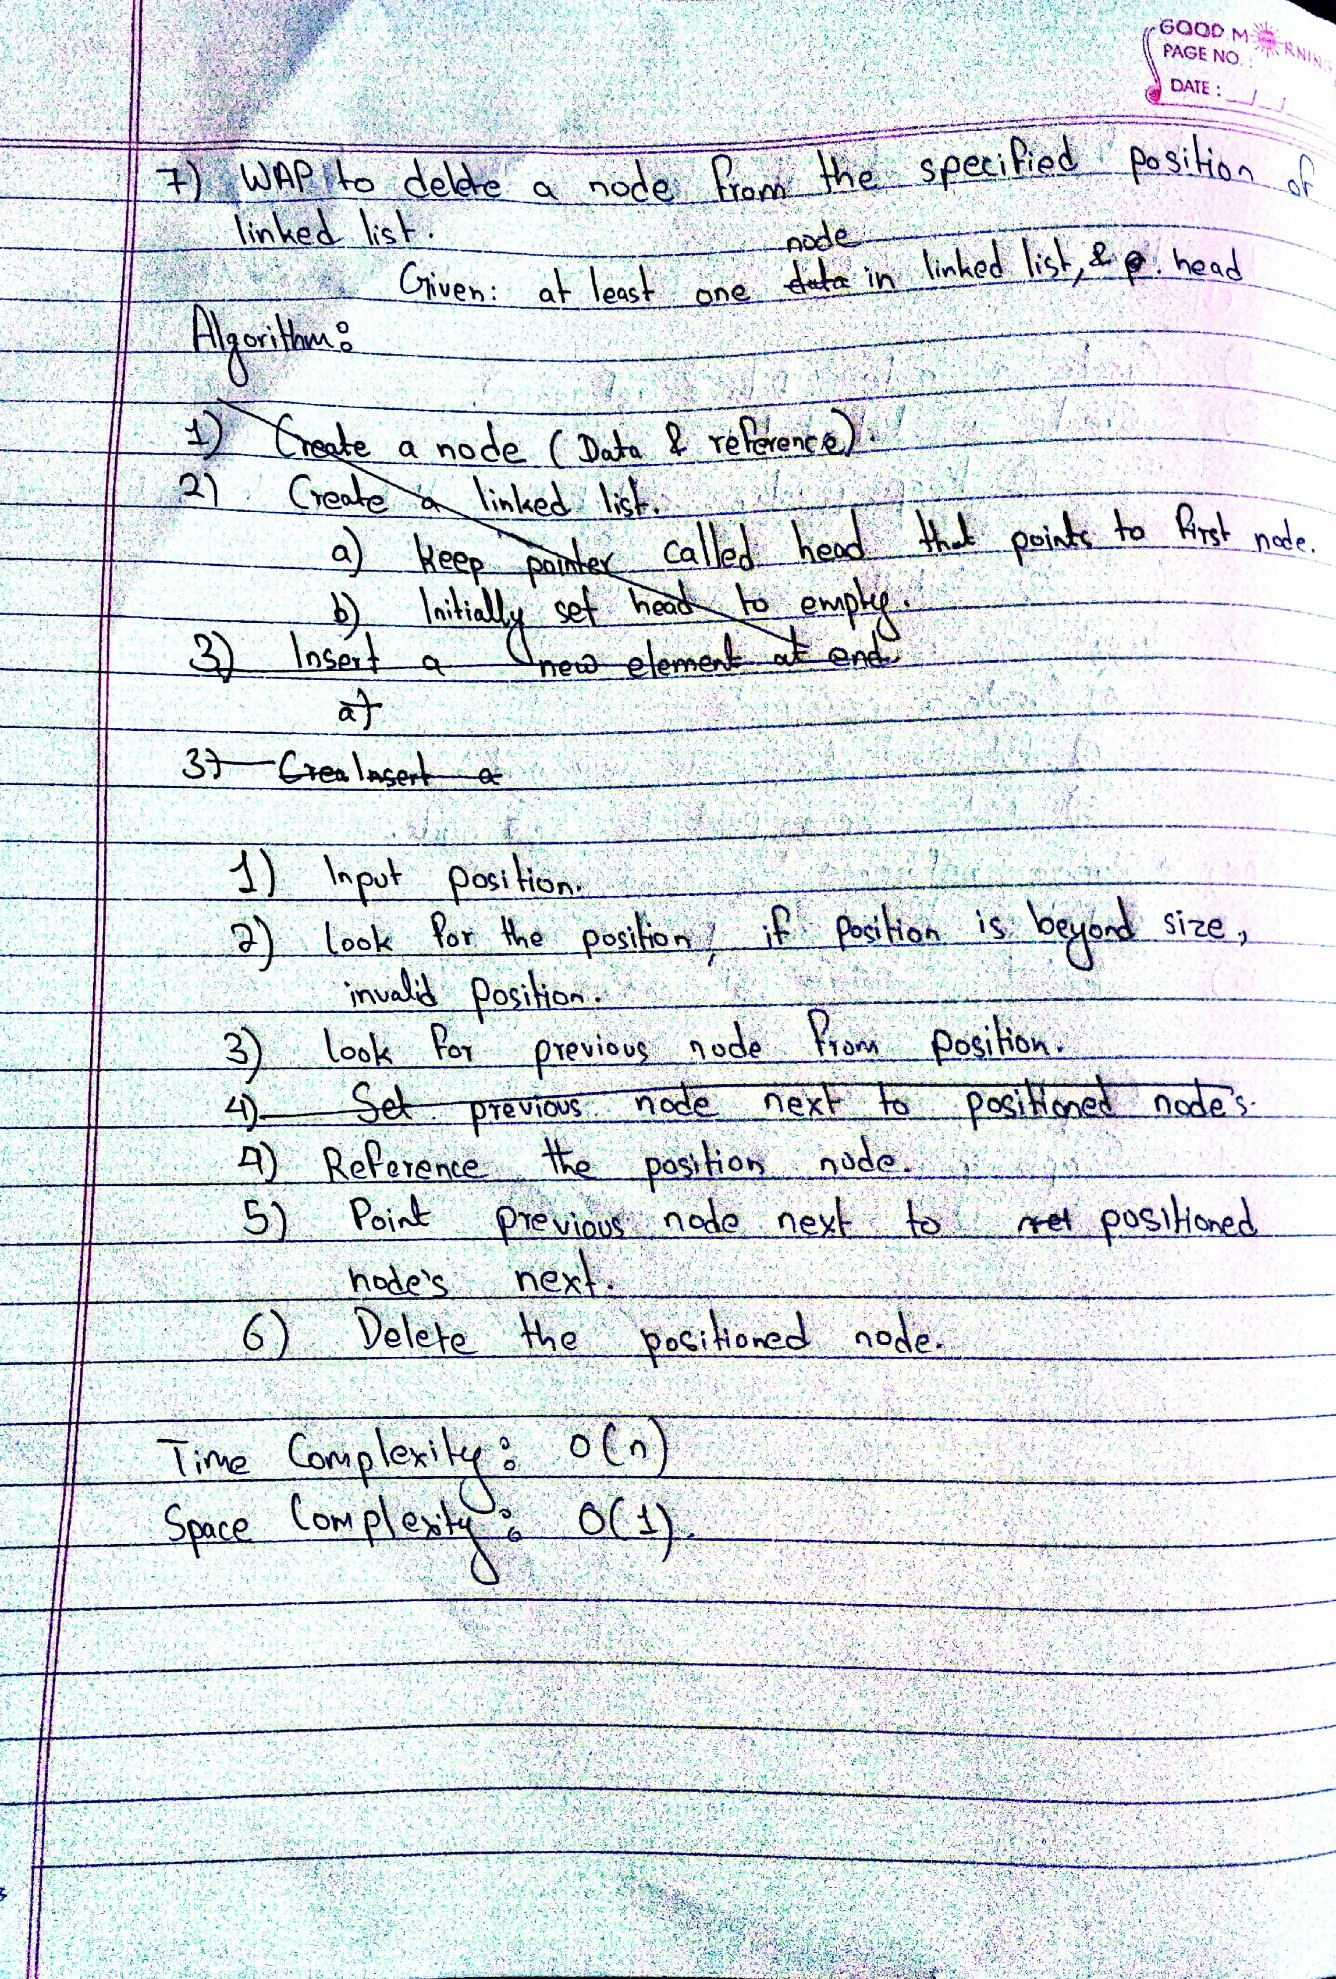 GOOD MORNING
PAGE NO.:
DATE:
7) WAP to delete a node from the specified position of
linked list.
node
Given: at least one data in linked list, & head
Algorithm:
1) Create a node (Data & reference).
2) Create a linked list.
a) Keep pointer called head that points to first node.
b) Initially set head to empty.
3) Insert a new element at end
a)
3) Crea Insert a
1) Input position.
2) Look for the position, if position is beyond size,
invalid position.
3) Look for previous node from position.
4) Set previous node next to positioned node's.
4) Reference the position node.
5) Point previous node next to positioned
node's next.
6) Delete the positioned node.
Time Complexity: O(n)
Space Complexity: O(1).